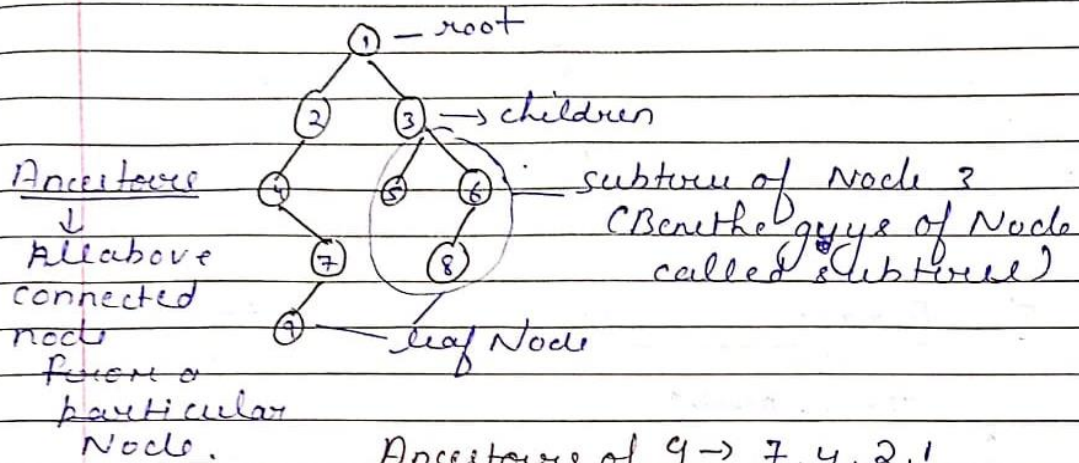 1 — root
2 3 → children
Ancestors
↓
All above
connected
node
from a
particular
Node.
4 5 6
subtree of Node 3
(Benethe guys of Node
called subtree)
7 8
9
leaf Node
Ancestors of 9 → 7, 4, 2, 1